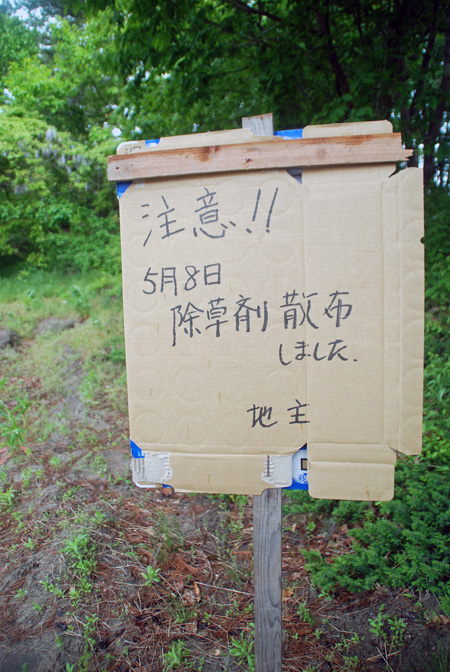 注意!!
5月8日
除草剤散布
しました.
地主